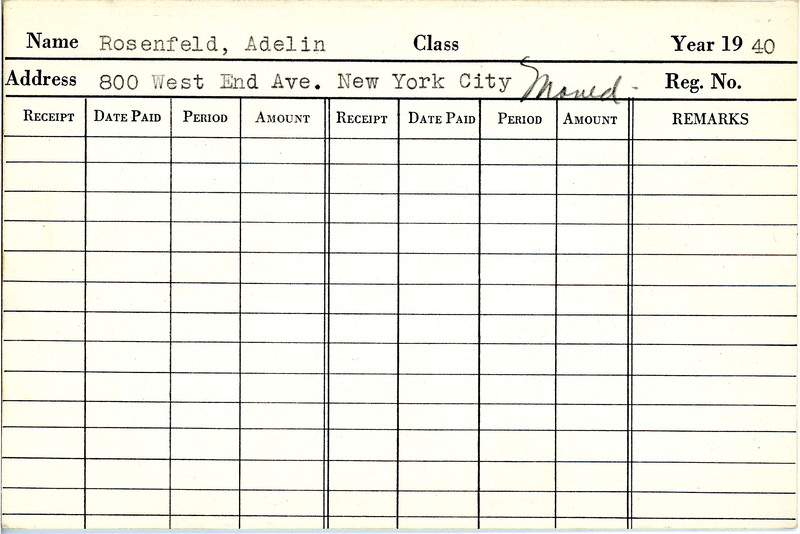 Name Rosenfeld, Adelin Class Year 19 40
Address 800 West End Ave. New York City Moved - Reg. No.
RECEIPT DATE PAID PERIOD AMOUNT RECEIPT DATE PAID PERIOD AMOUNT REMARKS